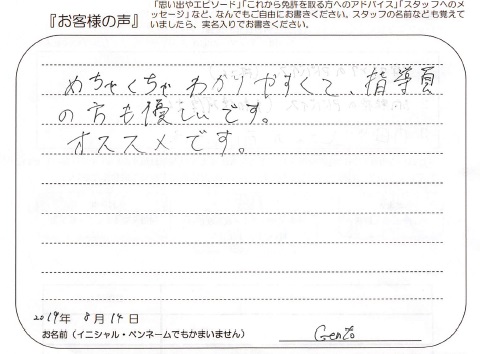 『お客様の声』
「思い出やエピソード」「これから免許を取る方へのアドバイス」「スタッフへのメ
ッセージ」など、なんでもご自由にお書きください。スタッフの名前なども覚えて
いましたら、実名入りでお書きください。
めちゃくちゃわかりやすくて、指導員
の方も優しいです。
オススメです。
2019年 8月14日
お名前（イニシャル・ペンネームでもかまいません） Gento